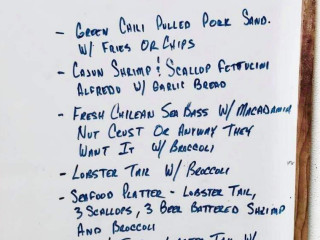 - GREEN CHILI PULLED PORK SAND.
W/ FRIES OR CHIPS
- CAJUN SHRIMP & SCALLOP FETTUCINI
ALFREDO W/ GARLIC BREAD
- FRESH CHILEAN SEA BASS W/ MACADAMIA
NUT CRUST OR ANYWAY THEY
WANT IT W/ BROCCOLI
- LOBSTER TAIL W/ BROCCOLI
- SEAFOOD PLATTER - LOBSTER TAIL,
3 SCALLOPS, 3 BEER BATTERED SHRIMP
AND BROCCOLI
LOBSTER TAIL W/